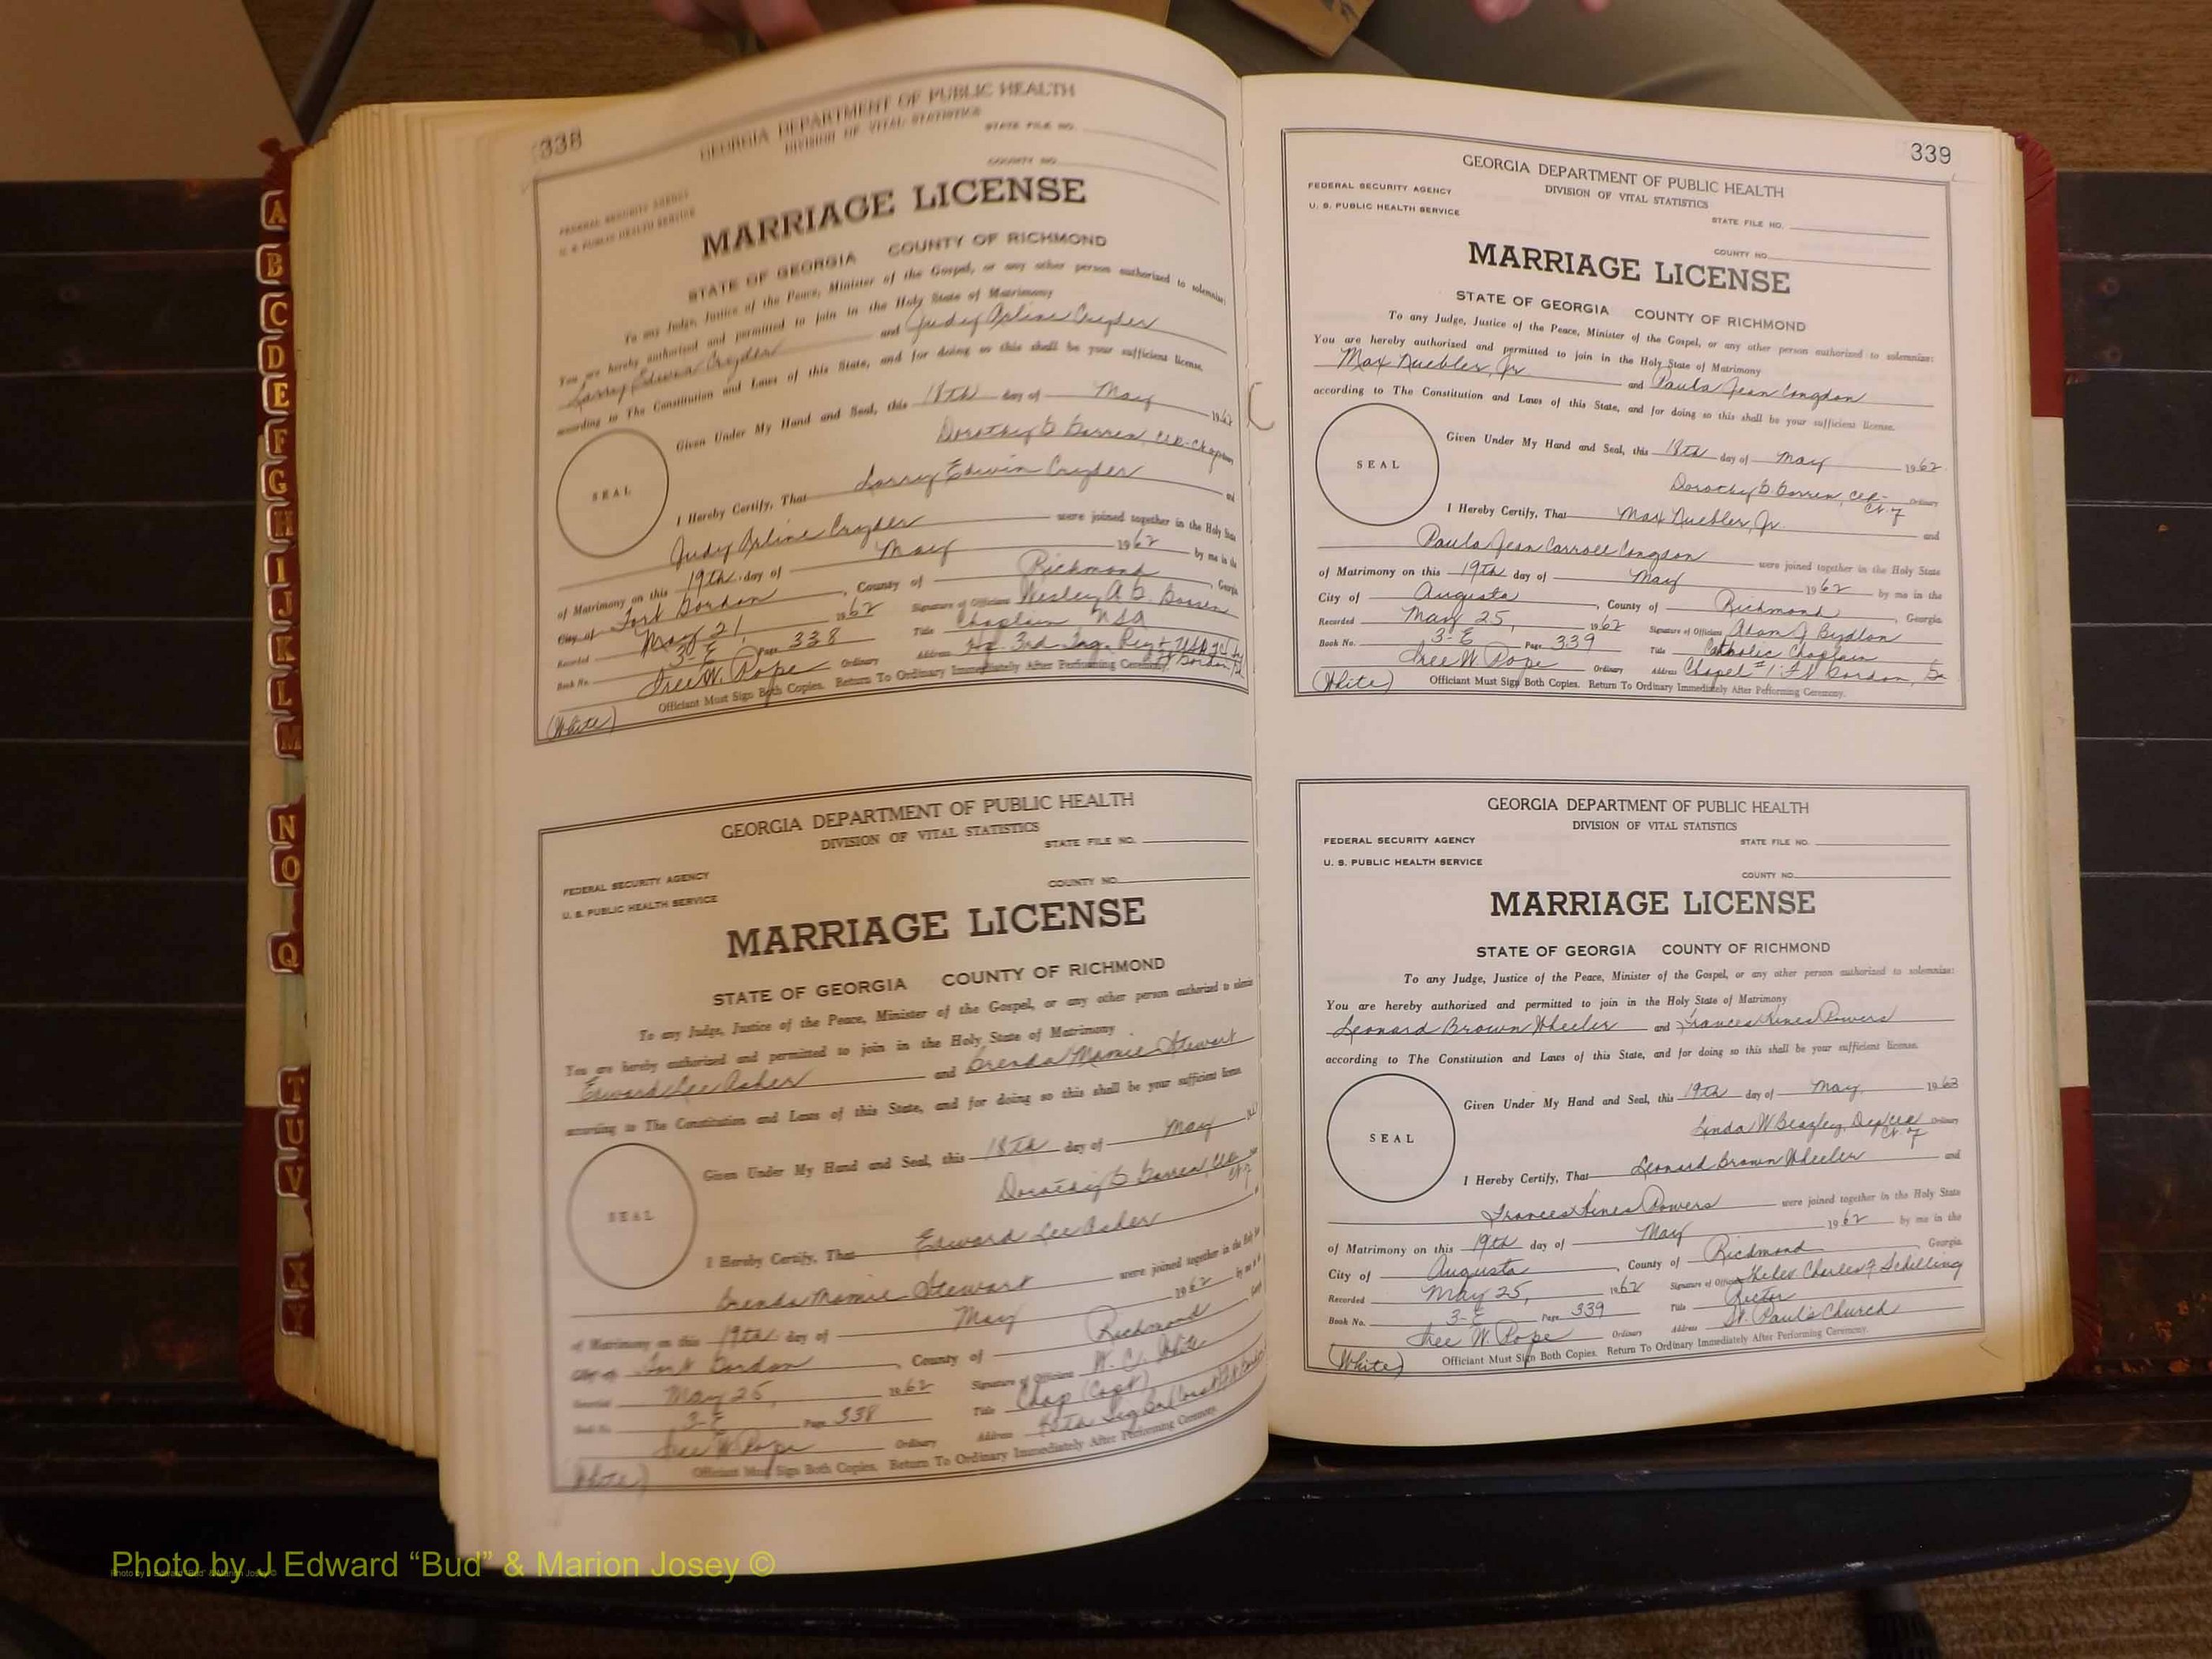 338
GEORGIA DEPARTMENT OF PUBLIC HEALTH
DIVISION OF VITAL STATISTICS
STATE FILE NO.
COUNTY NO.
FEDERAL SECURITY AGENCY
U. S. PUBLIC HEALTH SERVICE
MARRIAGE LICENSE
STATE OF GEORGIA COUNTY OF RICHMOND
To any Judge, Justice of the Peace, Minister of the Gospel, or any other person authorized to solemnize:
You are hereby authorized and permitted to join in the Holy State of Matrimony
Larry Edwin Cryder and Judy Arline Cryder
according to The Constitution and Laws of this State, and for doing so this shall be your sufficient license.
Given Under My Hand and Seal, this 18th day of May 1962
Dorothy B. Barren, Clk-Ct of Ordinary
SEAL
I Hereby Certify, That Larry Edwin Cryder and
Judy Arline Cryder were joined together in the Holy State
of Matrimony on this 19th day of May 1962 by me in the
City of Fort Gordon, County of Richmond, Georgia
Recorded May 21, 1962 Signature of Official Wesley A. G.
Book No. 3-E Page 338 Title Chaplain USA
Tree W. Pope Ordinary Address Hq. 3rd
Officiant Must Sign Both Copies. Return To Ordinary Immediately After Performing Ceremony.
(White)
GEORGIA DEPARTMENT OF PUBLIC HEALTH
DIVISION OF VITAL STATISTICS
STATE FILE NO.
COUNTY NO.
FEDERAL SECURITY AGENCY
U. S. PUBLIC HEALTH SERVICE
MARRIAGE LICENSE
STATE OF GEORGIA COUNTY OF RICHMOND
To any Judge, Justice of the Peace, Minister of the Gospel, or any other person authorized to solemnize
You are hereby authorized and permitted to join in the Holy State of Matrimony
Edward Lee Asher and Brenda Mamie Stewart
according to The Constitution and Laws of this State, and for doing so this shall be your sufficient license
Given Under My Hand and Seal, this 18th day of May
Dorothy B. Barren, Clk Ct. of
SEAL
I Hereby Certify, That Edward Lee Asher
Brenda Mamie Stewart were joined together in the Holy
of Matrimony on this 19th day of May 1962 by me in
City of Fort Gordon, County of Richmond
Recorded May 25, 1962 Signature of Official W. C. White
Book No. 3-E Page 338 Title Chap (Capt)
Tree W. Pope Ordinary Address
Officiant Must Sign Both Copies. Return To Ordinary Immediately After Performing Ceremony.
(White)
339
GEORGIA DEPARTMENT OF PUBLIC HEALTH
DIVISION OF VITAL STATISTICS
FEDERAL SECURITY AGENCY
U. S. PUBLIC HEALTH SERVICE
STATE FILE NO.
COUNTY NO.
MARRIAGE LICENSE
STATE OF GEORGIA COUNTY OF RICHMOND
To any Judge, Justice of the Peace, Minister of the Gospel, or any other person authorized to solemnize:
You are hereby authorized and permitted to join in the Holy State of Matrimony
Max Nuebler, Jr. and Paula Jean Congdon
according to The Constitution and Laws of this State, and for doing so this shall be your sufficient license.
Given Under My Hand and Seal, this 18th day of May 1962
Dorothy B. Barren, Clk-Ct. of Ordinary
SEAL
I Hereby Certify, That Max Nuebler, Jr. and
Paula Jean Carroll Congdon were joined together in the Holy State
of Matrimony on this 19th day of May 1962 by me in the
City of Augusta, County of Richmond, Georgia
Recorded May 25, 1962 Signature of Official Adam J Bydlon
Book No. 3-E Page 339 Title Catholic Chaplain
Tree W. Pope Ordinary Address Chapel #1 Ft Gordon, Ga
Officiant Must Sign Both Copies. Return To Ordinary Immediately After Performing Ceremony.
(White)
GEORGIA DEPARTMENT OF PUBLIC HEALTH
DIVISION OF VITAL STATISTICS
FEDERAL SECURITY AGENCY
U. S. PUBLIC HEALTH SERVICE
STATE FILE NO.
COUNTY NO.
MARRIAGE LICENSE
STATE OF GEORGIA COUNTY OF RICHMOND
To any Judge, Justice of the Peace, Minister of the Gospel, or any other person authorized to solemnize:
You are hereby authorized and permitted to join in the Holy State of Matrimony
Leonard Brown Wheeler and Frances Hines Powers
according to The Constitution and Laws of this State, and for doing so this shall be your sufficient license.
Given Under My Hand and Seal, this 19th day of May, 1962
Linda W Beazley, Dep Clk Ct. of Ordinary
SEAL
I Hereby Certify, That Leonard Brown Wheeler and
Frances Hines Powers were joined together in the Holy State
of Matrimony on this 19th day of May 1962 by me in the
City of Augusta, County of Richmond, Georgia
Recorded May 25, 1962 Signature of Official Charles F Schilling
Book No. 3-E Page 339 Title Rector
Tree W. Pope Ordinary Address St. Paul's Church
Officiant Must Sign Both Copies. Return To Ordinary Immediately After Performing Ceremony.
(White)
A
B
C
D
E
F
G
H
I
J
K
L
M
N
O
Q
T
U
V
X
Y
Photo by J Edward “Bud” & Marion Josey ©
Photo by J Edward "Bud" & Marion Josey ©